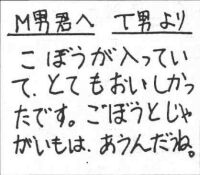 M男君へ T男より
こぼうが入ってい
て、とてもおいしかっ
たです。ごぼうとじゃ
がいもは、あうんだね。